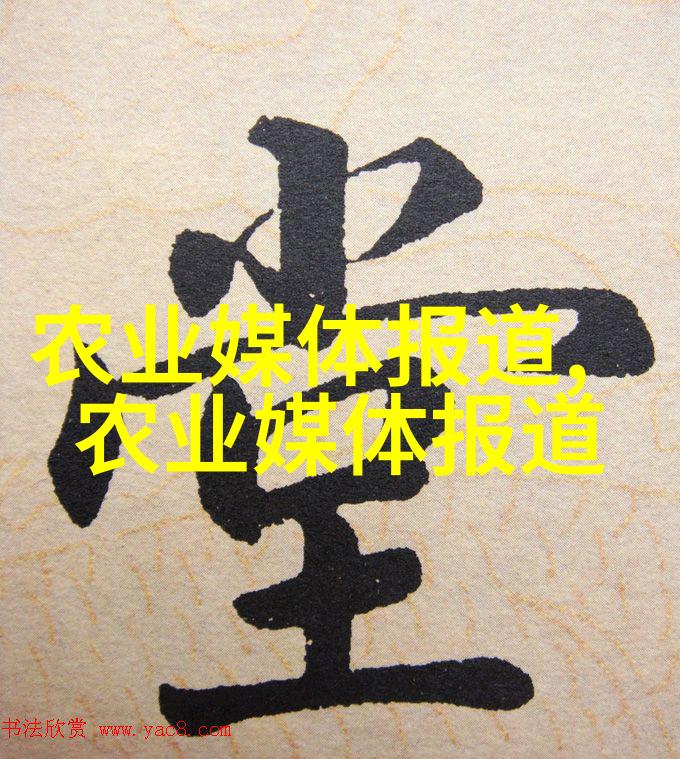 堂
农业媒体报道,
农业媒体报道
书法欣赏 www.yac8.com